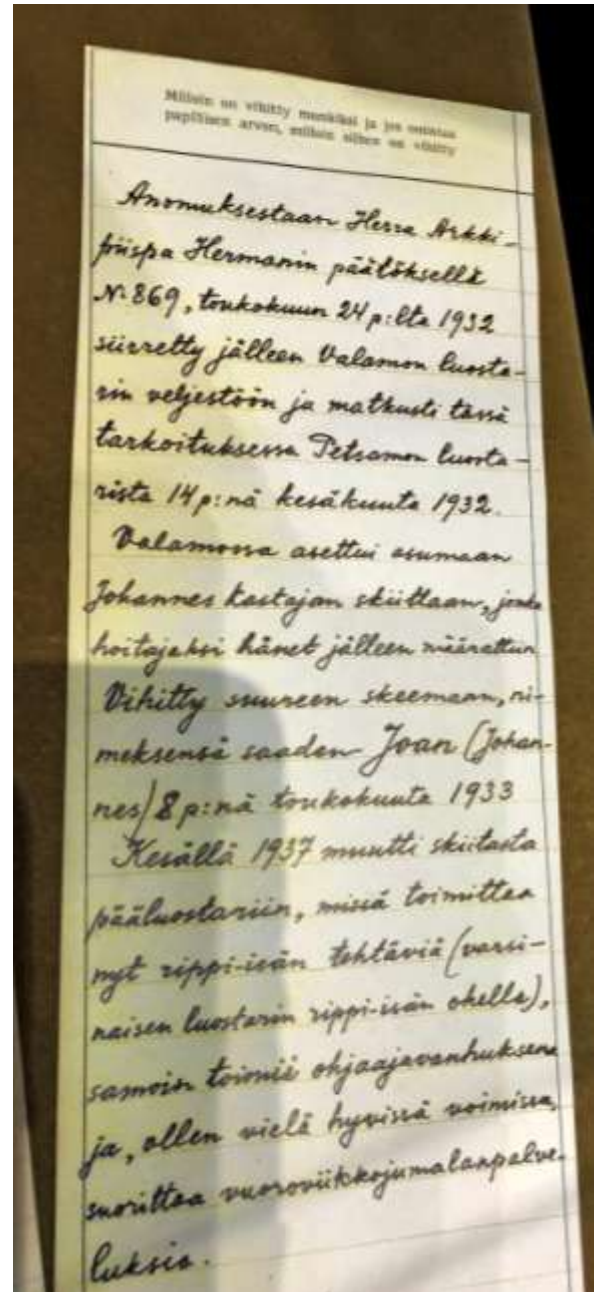 Milloin on vihitty munkiksi ja jos omistaa
papillisen arvon, milloin siihen on vihitty
Anomuksestaan Herra Arkki-
piispa Hermanin päätöksellä
N:869, toukokuun 24 p:ltä 1932
siirretty jälleen Valamon luosta-
rin veljestöön ja matkusti tässä
tarkoituksessa Petsamon luosta-
rista 14 p:nä kesäkuuta 1932.
Valamossa asettui asumaan
Johannes Kastajan skiittaan, jonka
hoitajaksi hänet jälleen määrättiin
Vihitty suureen skeemaan, ni-
meksensä saaden Joan (Johan-
nes) 8 p:nä toukokuuta 1933
Kesällä 1937 muutti skiitasta
pääluostariin, missä toimittaa
nyt rippi-isän tehtäviä (varsi-
naisen luostarin rippi-isän ohella),
samoin toimii ohjaajavanhuksena
ja, ollen vielä hyvissä voimissa,
suorittaa vuoroviikkojumalanpalve-
luksia.